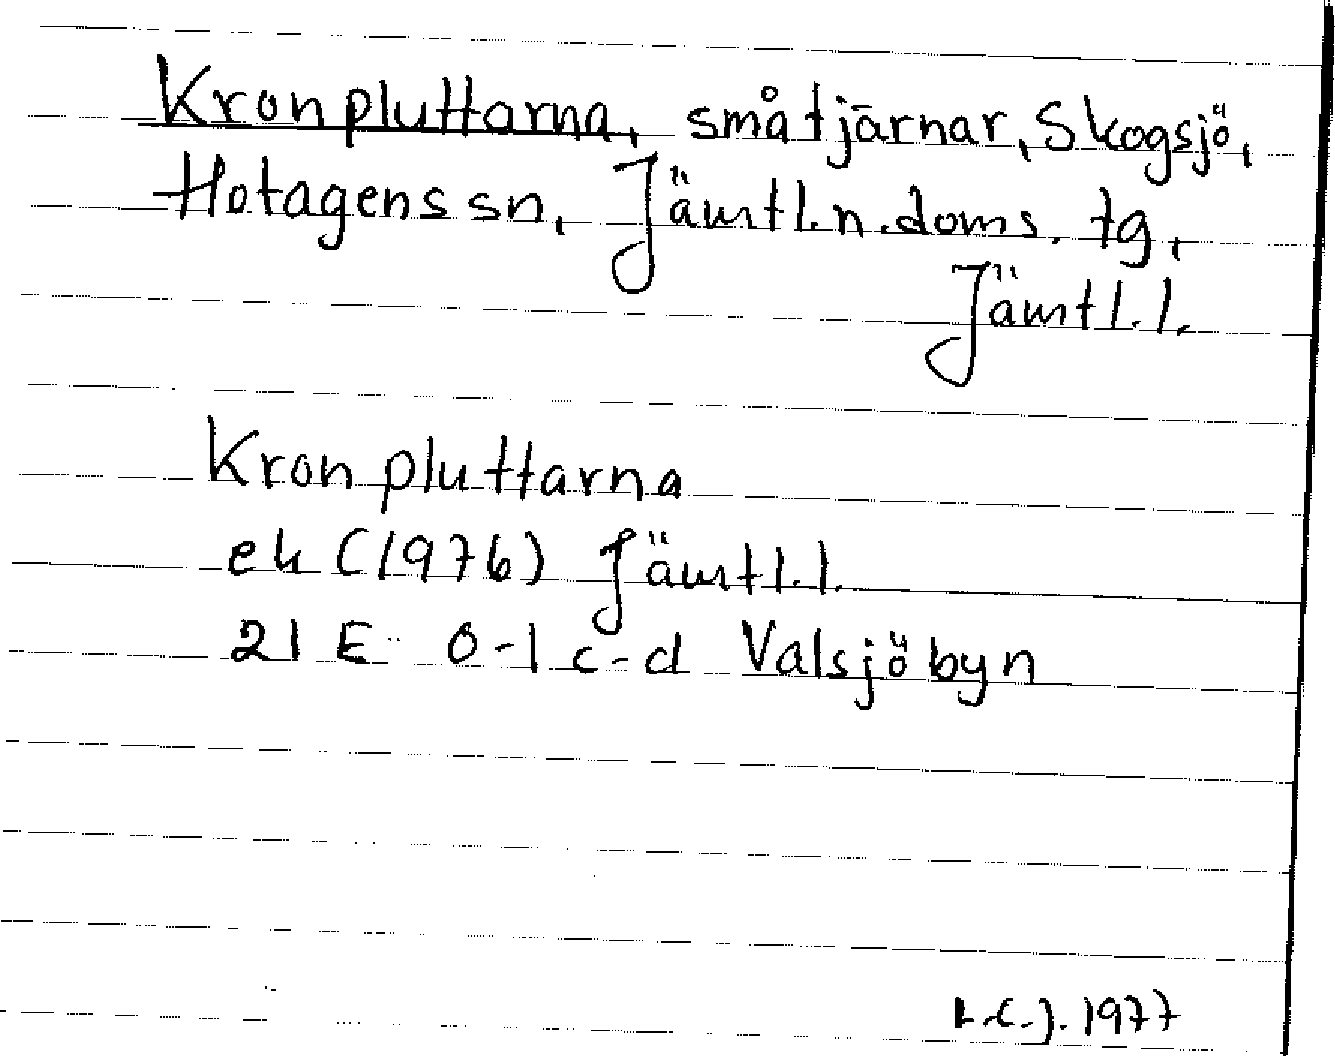 Kronpluttarna, småtjärnar, Skogsjö,
Hotagens sn, Jämtl.n.doms.tg,
Jämtl.l.
Kronpluttarna
ek (1976) Jämtl.l.
21 E 0-1 c-d Valsjöbyn
1977